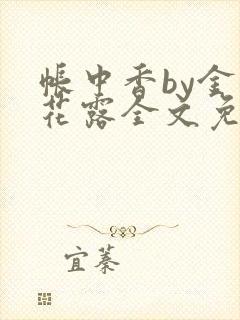 帐中香by金
花露全文免
宜蓁